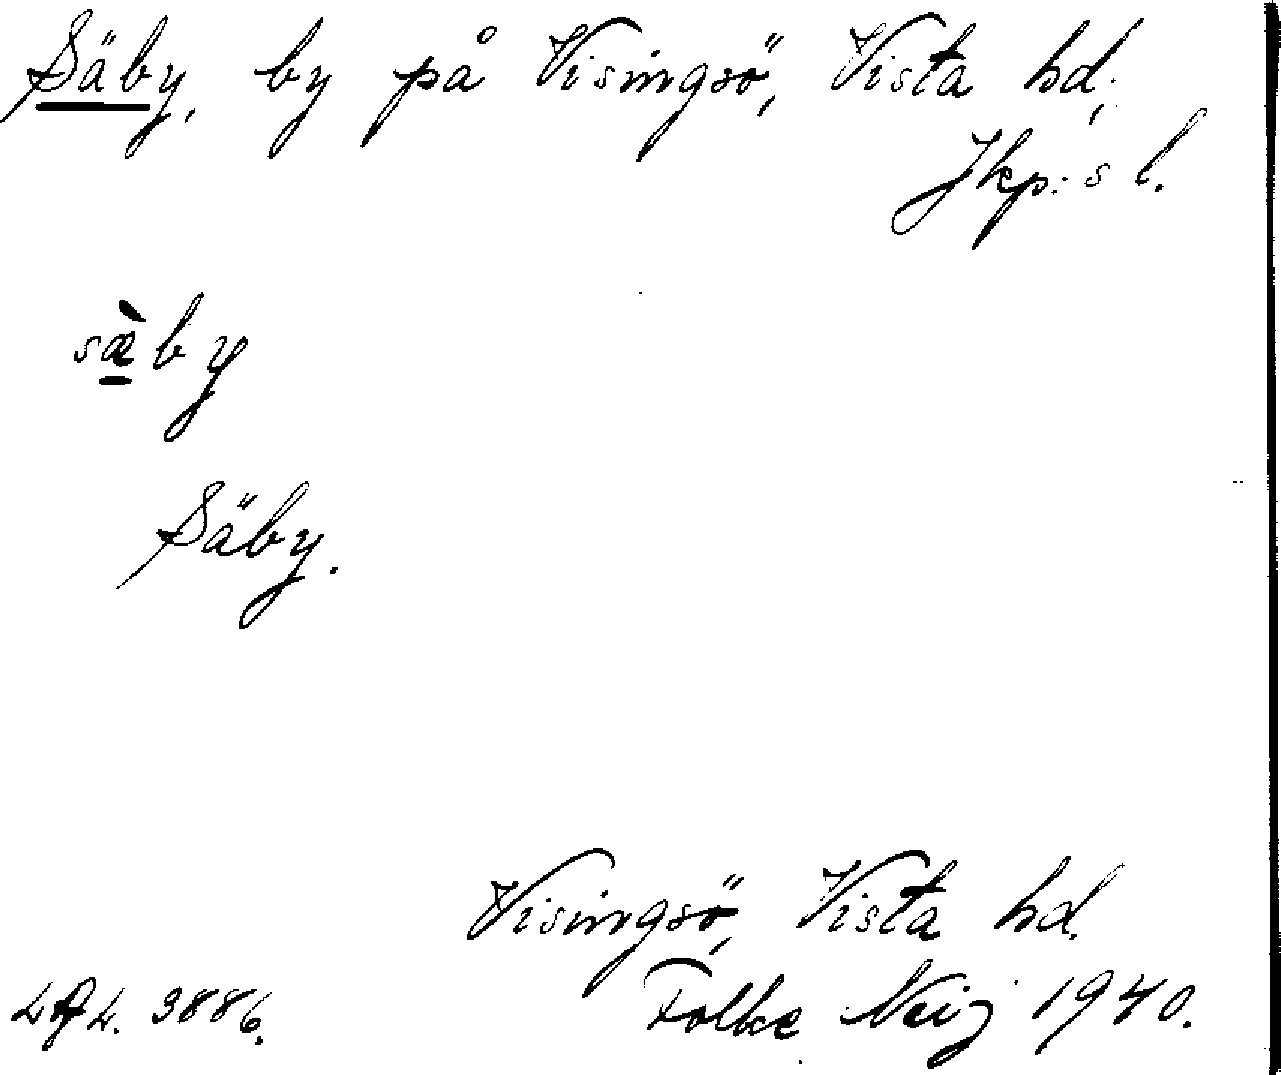 Säby, by på Visingsö, Vista hd,
Jkp:s l.
sæ̀by
Säby.
Visingsö, Vista hd.
3886. Folke Neij 1940.